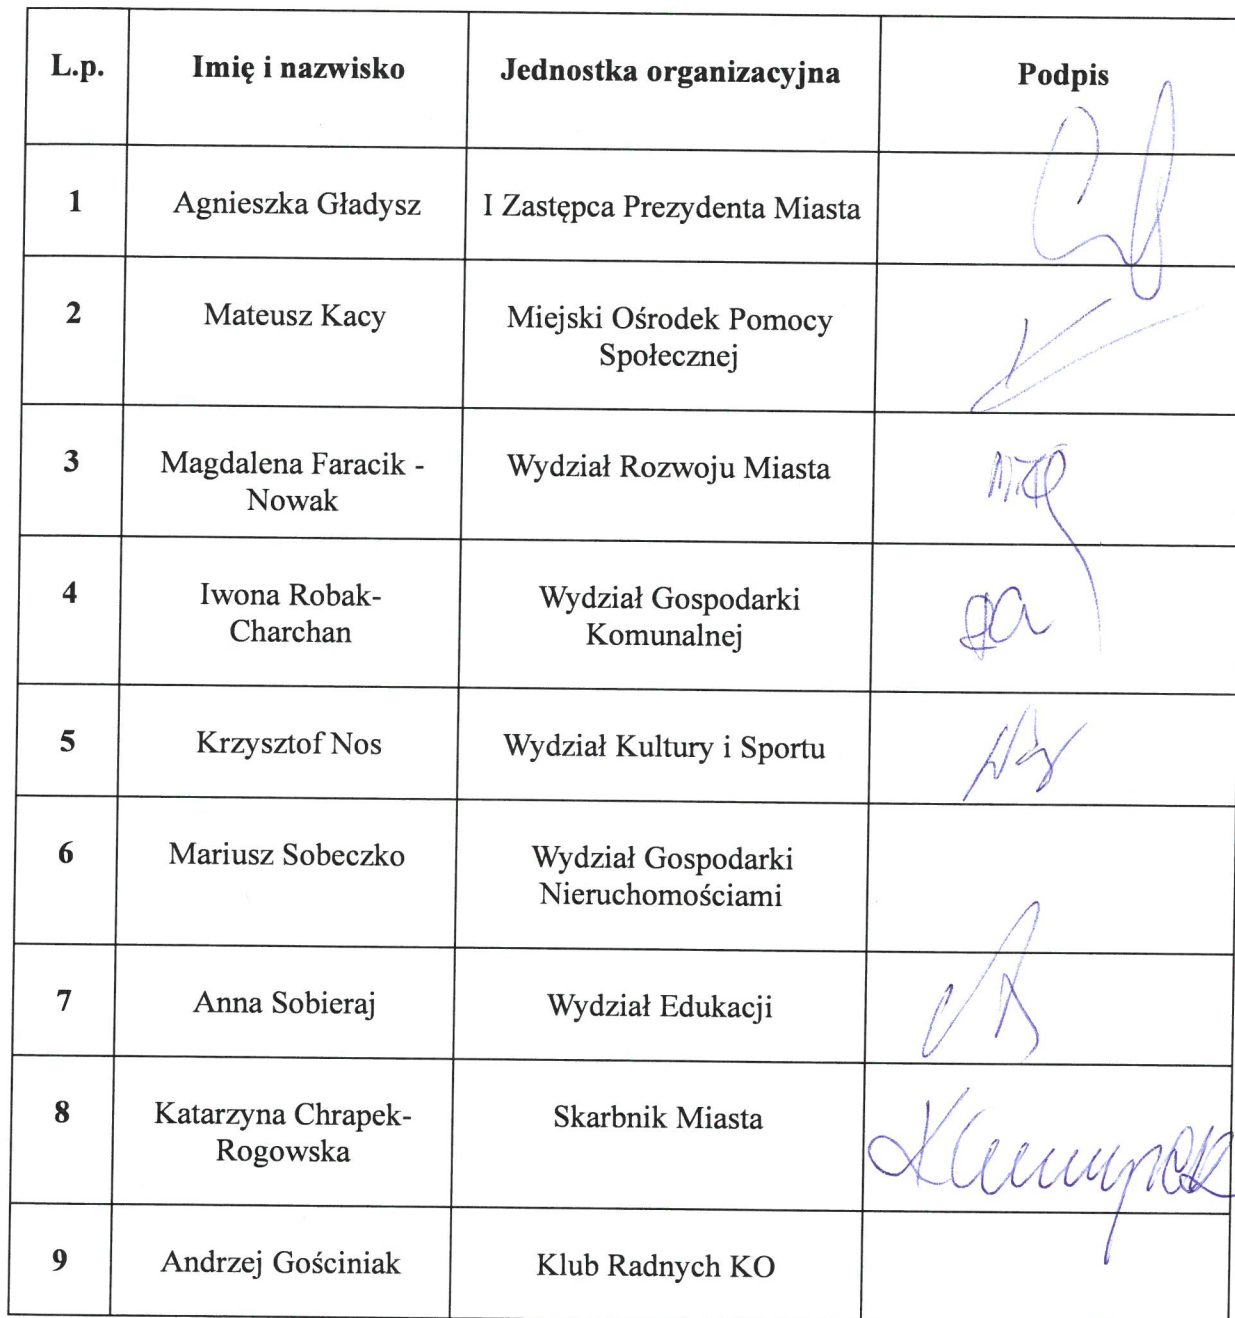 L.p. Imię i nazwisko Jednostka organizacyjna Podpis
1 Agnieszka Gładysz I Zastępca Prezydenta Miasta
2 Mateusz Kacy Miejski Ośrodek Pomocy
Społecznej
3 Magdalena Faracik - Wydział Rozwoju Miasta
Nowak
4 Iwona Robak- Wydział Gospodarki
Charchan Komunalnej
5 Krzysztof Nos Wydział Kultury i Sportu
6 Mariusz Sobeczko Wydział Gospodarki
Nieruchomościami
7 Anna Sobieraj Wydział Edukacji
8 Katarzyna Chrapek- Skarbnik Miasta
Rogowska
9 Andrzej Gościniak Klub Radnych KO